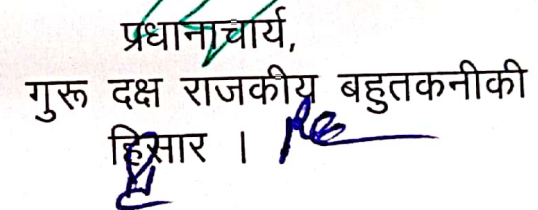 प्रधानाचार्य,
गुरू दक्ष राजकीय बहुतकनीकी
हिसार ।